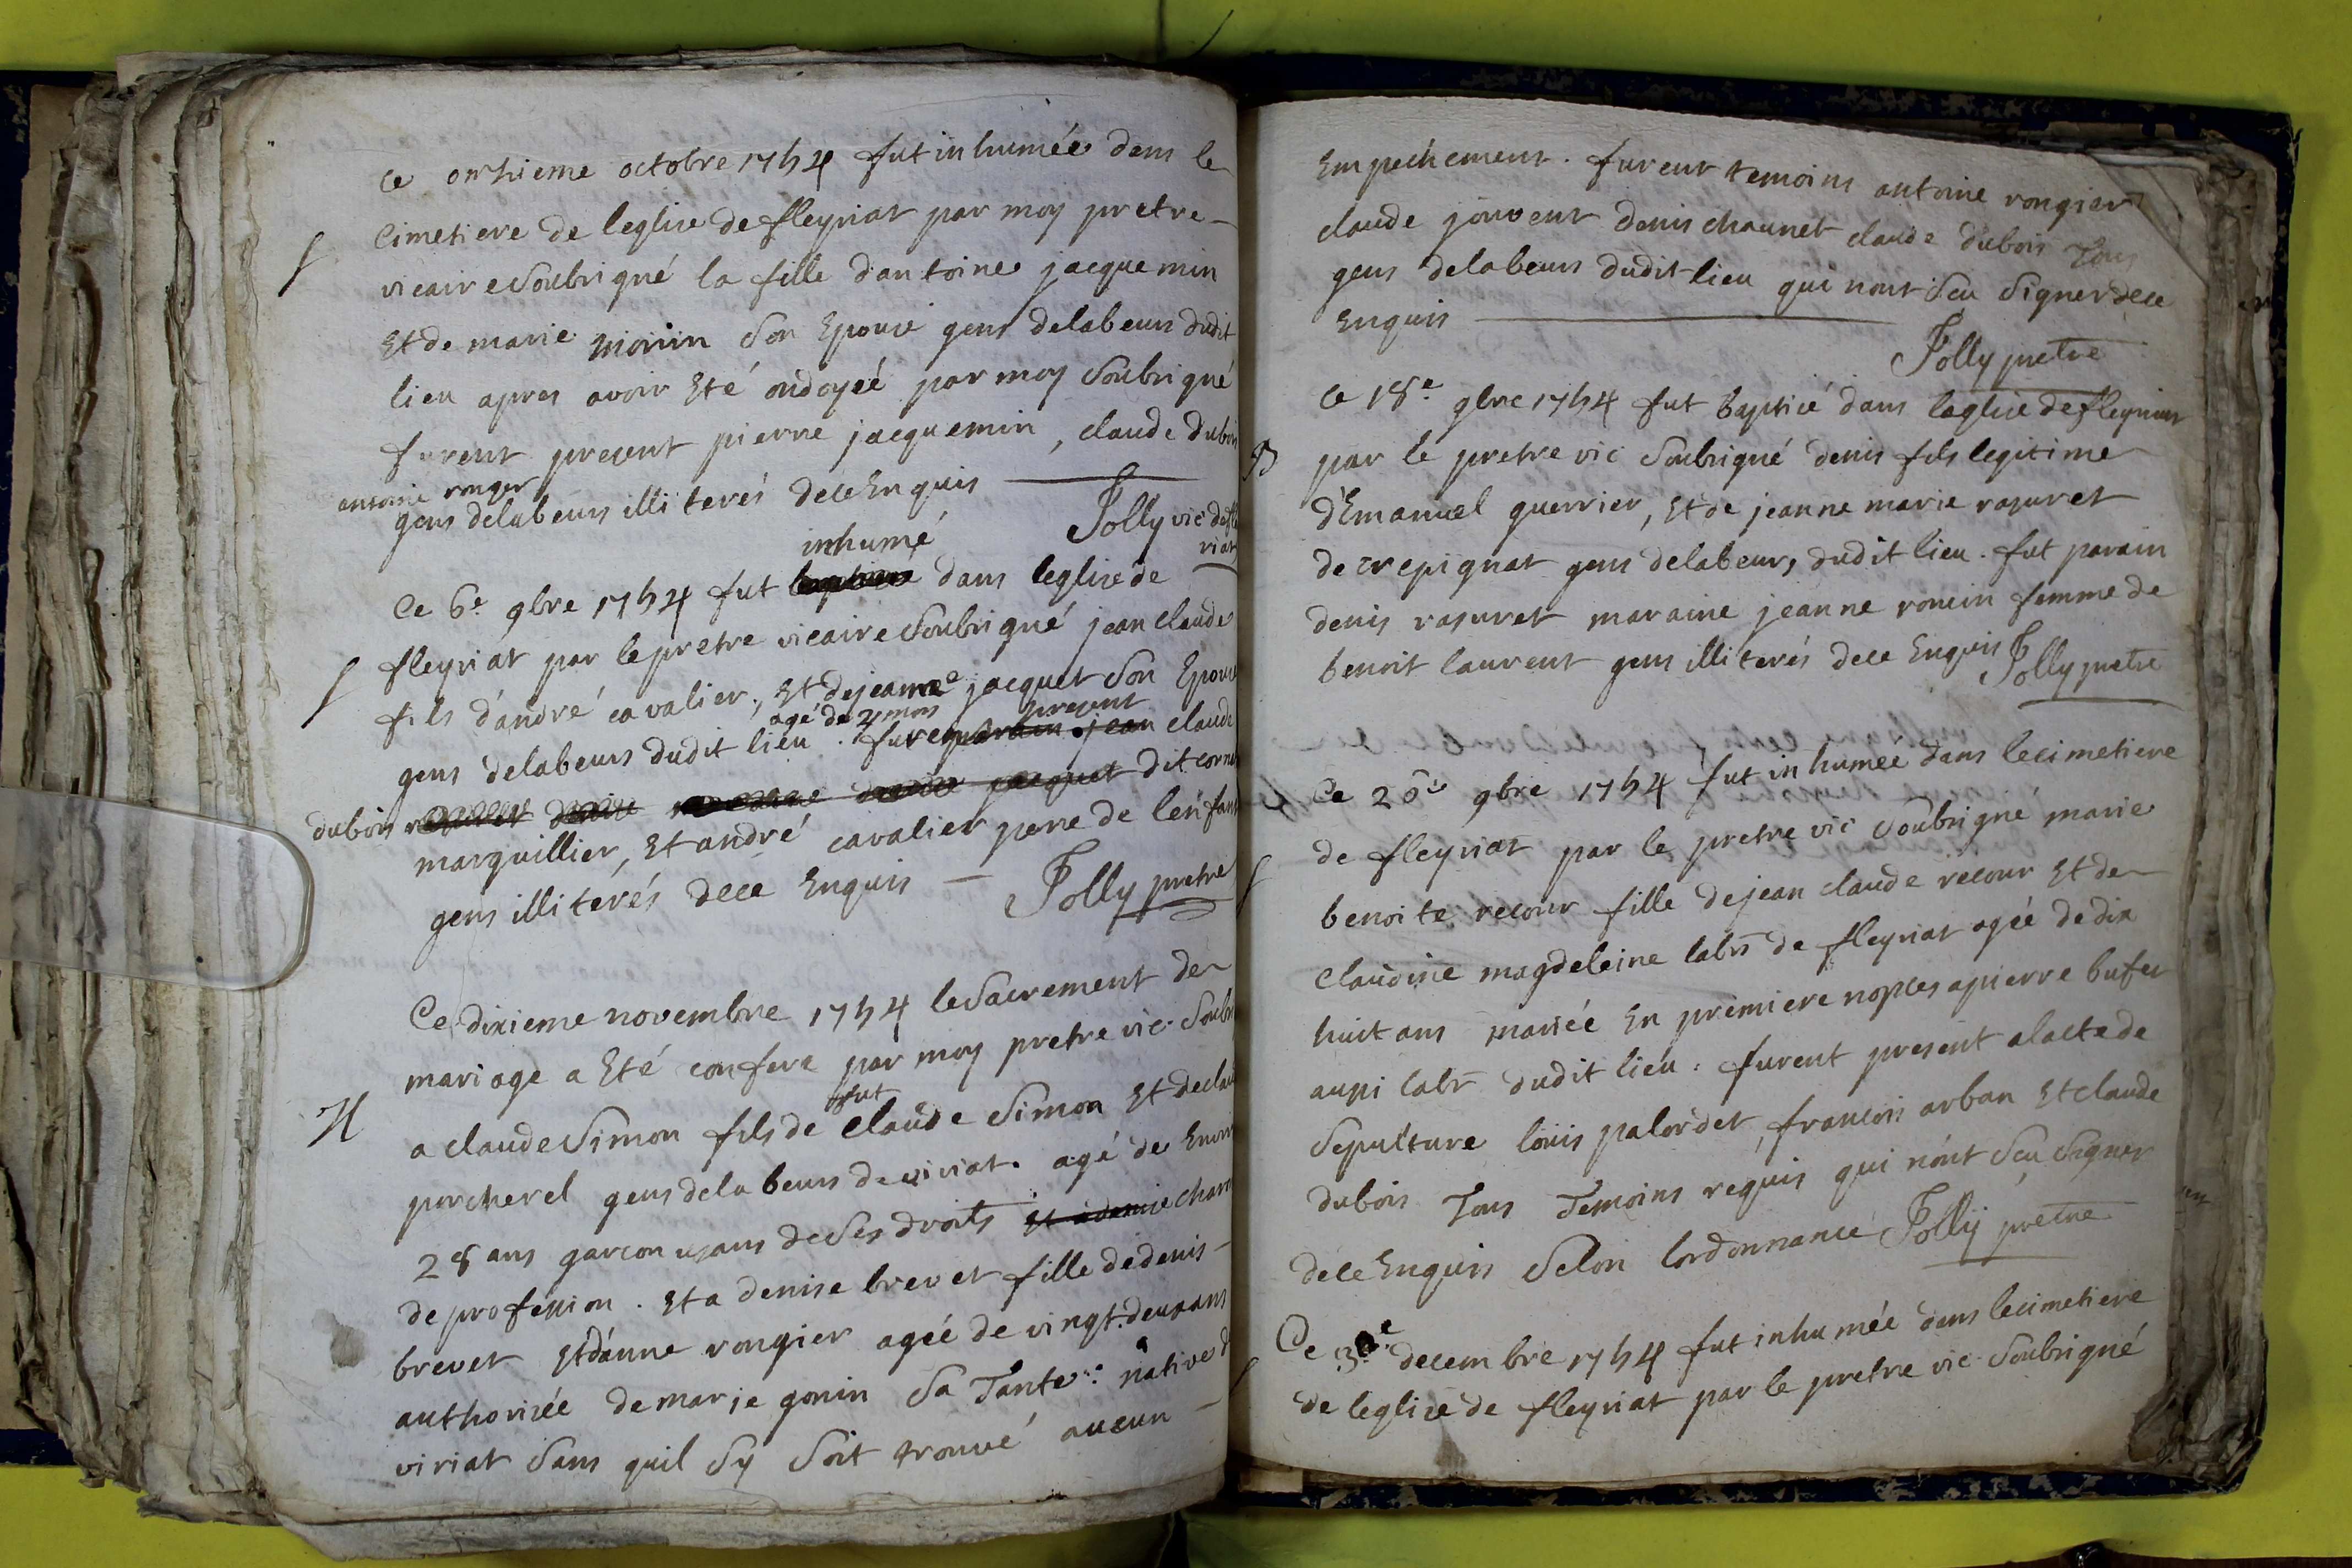 ce onzieme octobre 1754 fut inhumée dans le
S cimetiere de leglise de fleyriat par moy pretre
vicaire Soubsigné la fille dantoine jacquemin
Et de marie monin Son Epouse gens delabeurs dudit
lieu apres avoir Eté ondoyeé par moy Soubsigné
furent present pierre jacquemin, claude dubois
antoine rongier
gens delabeurs illiterés dece Enquis
Jolly vic de fley
riat
inhumé
Ce 6e 9bre 1754 fut dans leglise de
S fleyriat par le pretre vicaire Soubsigné jean claude
fils d'andré cavalier, Et de jeanne jacquet Son Epouse
agé de 2 mois present
gens delabeurs dudit lieu. furent claude
dubois dit
marguillier, Et andré cavalier pere de lenfant
gens illiterés dece Enquis Jolly pretre
Ce dixieme novembre 1754 le Sacrement de
mariage a Eté confere par moy pretre vic. Soubs
fut
M a claude Simon fils de claude Simon Et de clau
porcherel gens delabeurs de viriat. agé de Environ
28 ans garcon usans de Ses droits Et
de profession. Et a denise brevet fille de denis
brevet Et d'anne rongier ageé de vingt deux ans
authoriseé de marie gonin Sa Tante. native d
viriat Sans quil Sy Soit trouvé aucun
Empechement. furent temoins antoine rongier
claude jouvent denis chaunet claude dubois Tous
gens delabeurs dudit lieu qui nont Seu Signer dece
Enquis
Jolly pretre
Ce 18e 9bre 1754 fut baptisé dans leglise de fleyriat
B par le pretre vic Soubsigné denis fils legitime
d'Emanuel guerrier, Et de jeanne marie rasuret
de crepignat gens delabeurs dudit lieu. fut parain
denis rasuret maraine jeanne roncin femme de
benoit laurent gens illiterés dece Enquis Jolly pretre
Ce 26e 9bre 1754 fut inhumeé dans lecimetiere
de fleyriat par le pretre vic Soubsigné marie
S benoite recour fille de jean claude recour Et de
claudine magdeleine labrs de fleyriat ageé de dix
huit ans marieé En premiere nopces a pierre bufet
aussi labr dudit lieu. furent present alactede
Sepulture loüis palordet, francois arban Et claude
dubois Tous Temoins requis qui n'ont Seu Signer
dece Enquis Selon lordonnance Jolly pretre
Ce 3e decembre 1754 fut inhumée dans lecimetiere
S de leglise de fleyriat par le pretre vic. Soubsigné